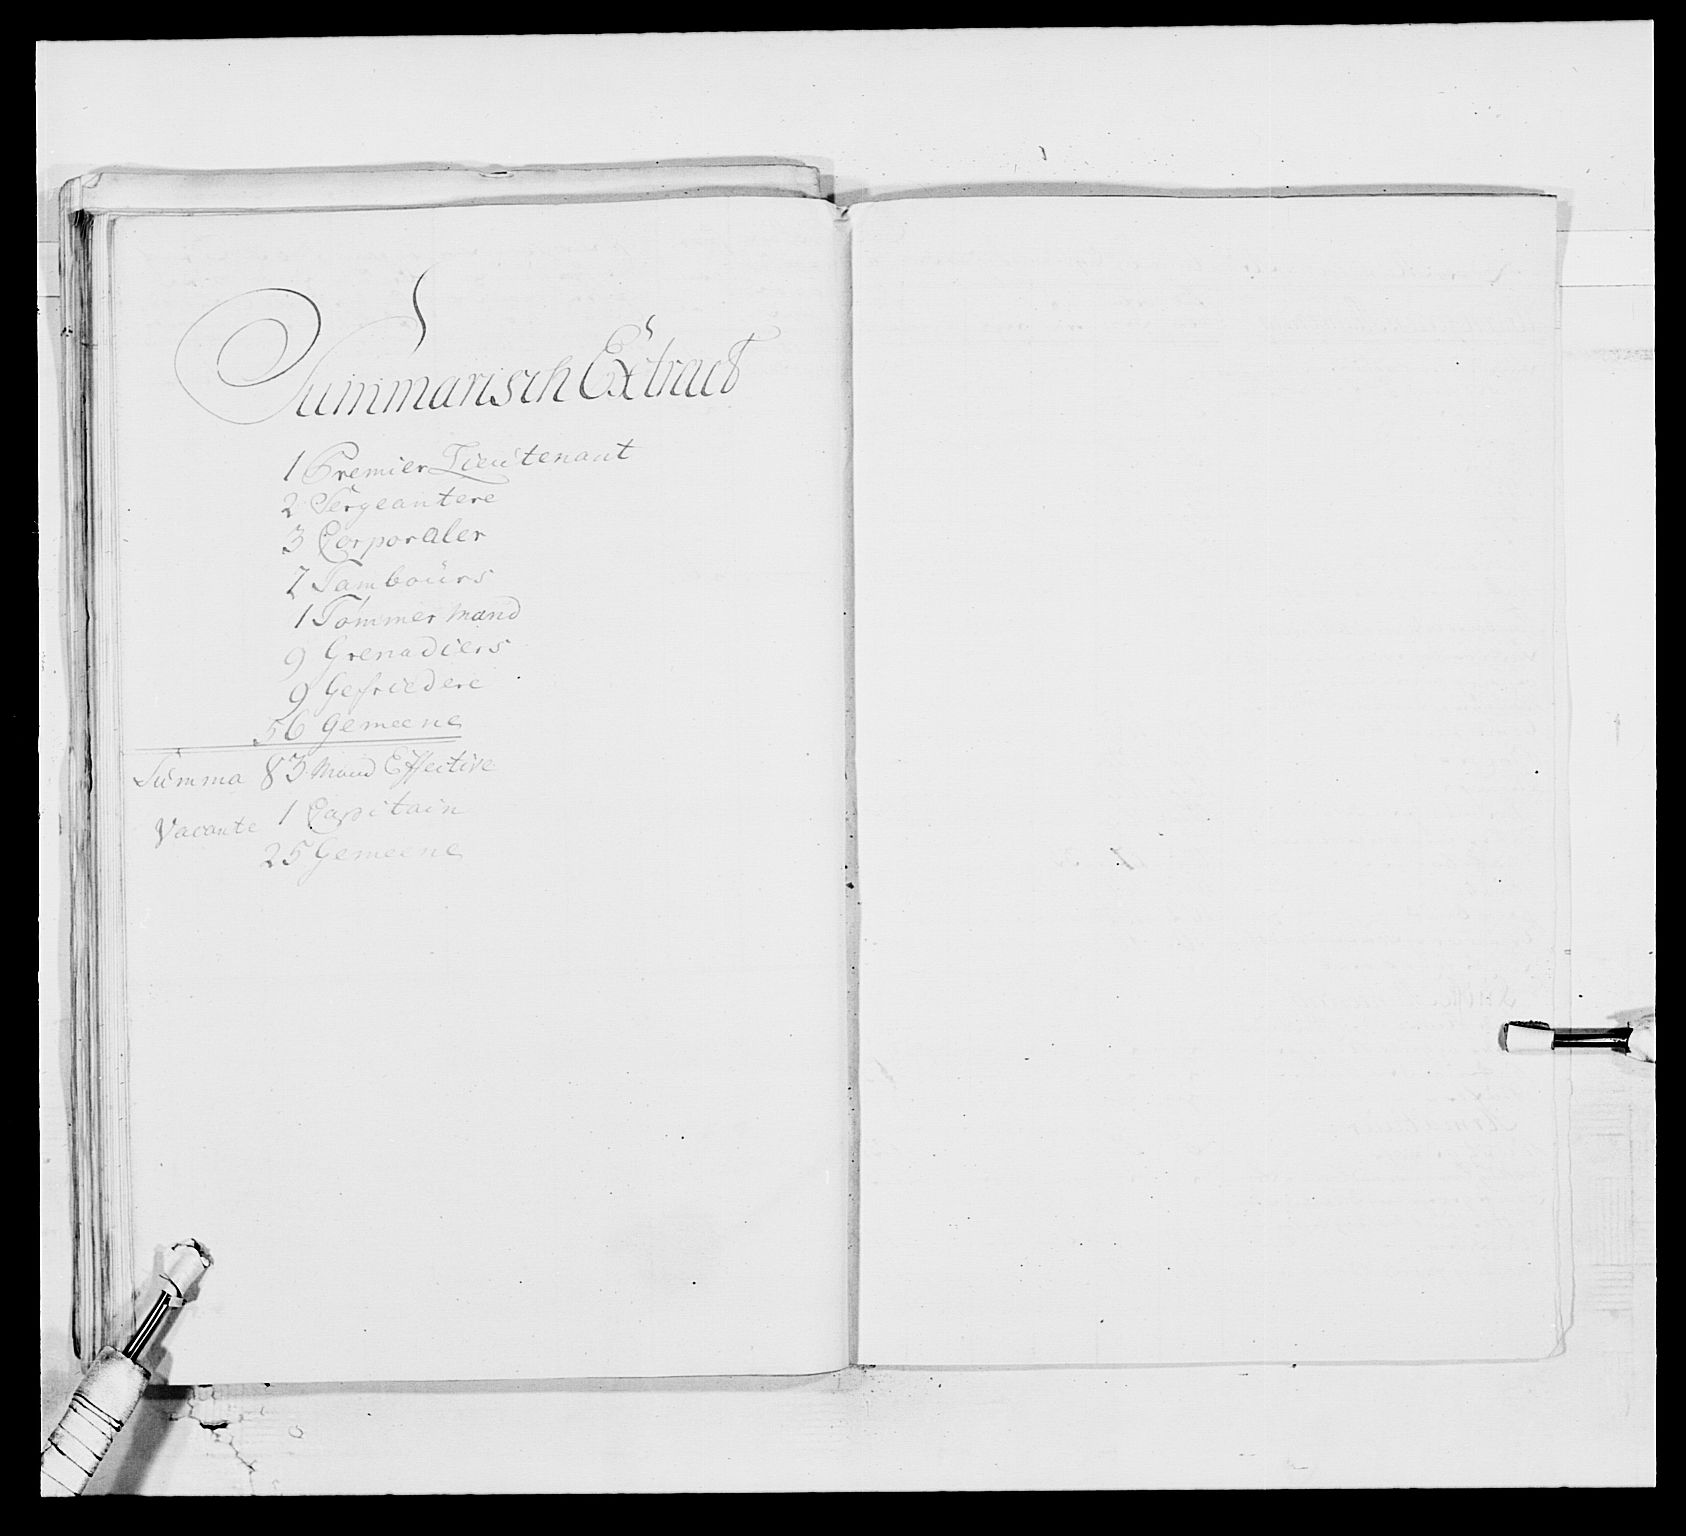 Summarisch Extract
1 Premier Lieutenant
2 Sergeantere
3 Corporaler
2 Tambours
1 Tömmer Mand
9 Grenadiers
9 Gefriedere
56 Gemeene
Summa 83 Mand Effective
Vacante 1 Capitain
25 Gemeene